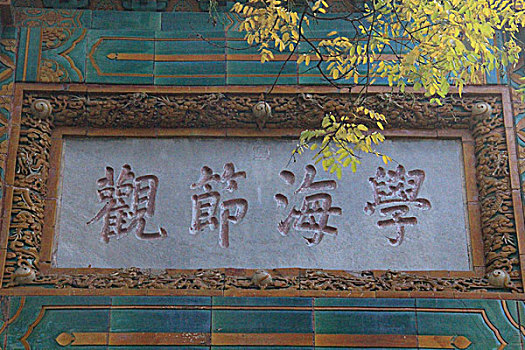 學海節觀